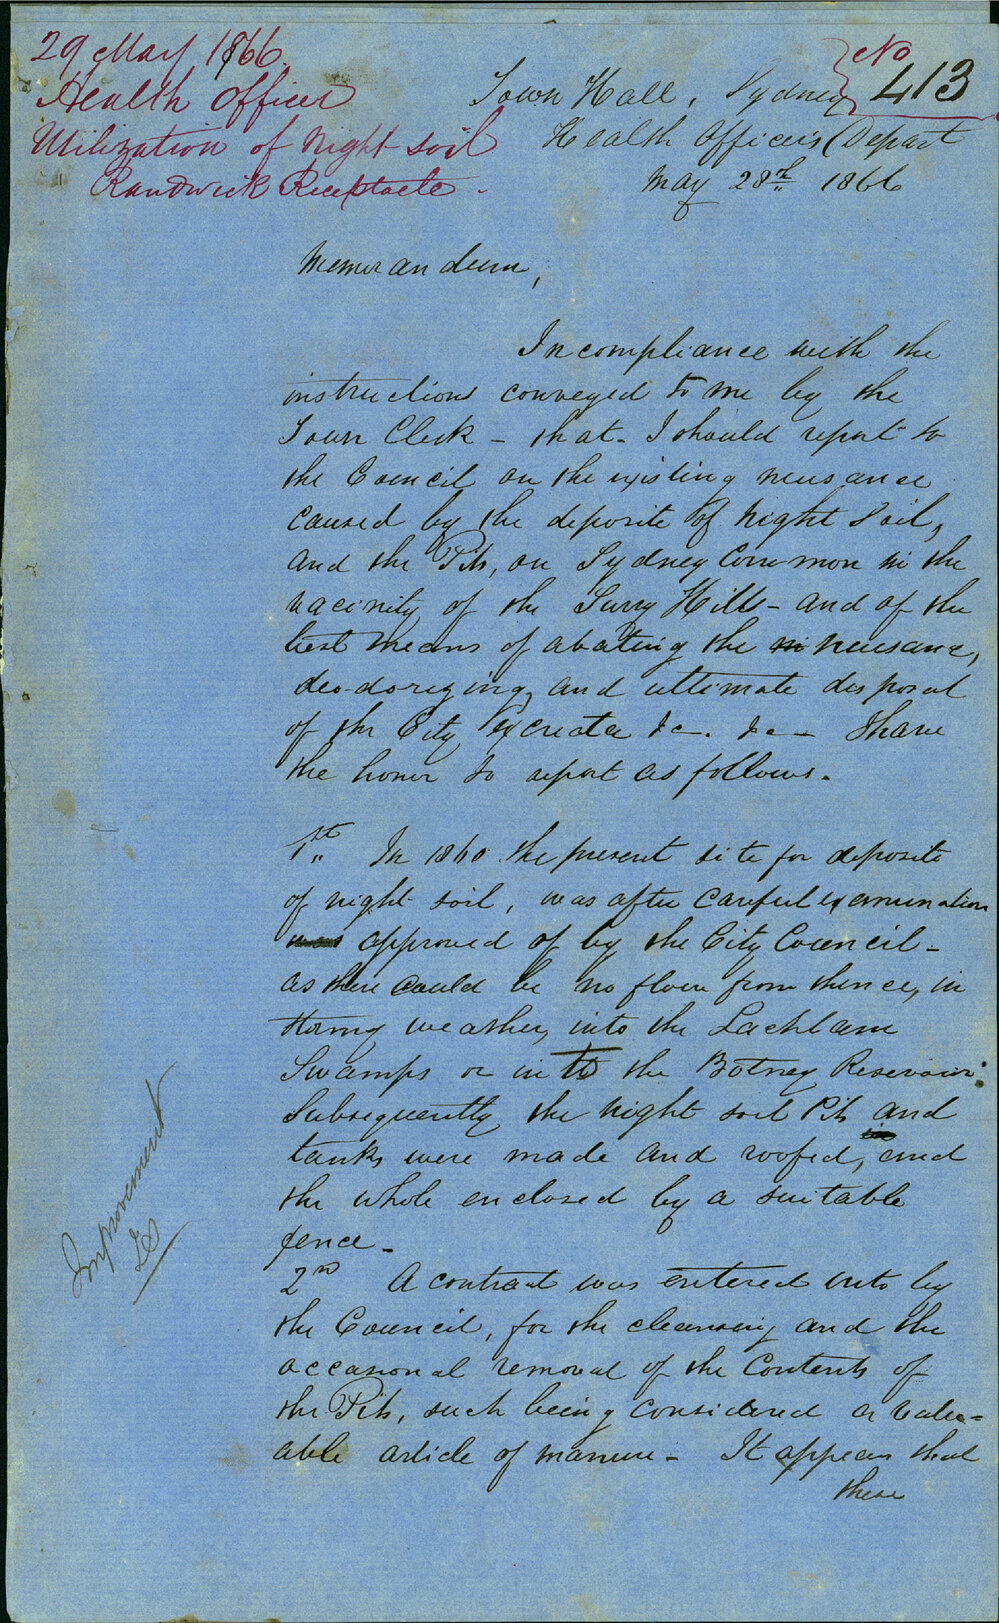 29 May 1866
Health Officer
Utilization of Night soil
Randwick Receptacle -
No 413
Town Hall, Sydney
Health Officer's Depart
May 28th 1866
Memorandum,
In compliance with the
instructions conveyed to me by the
Town Clerk - that - I should report to
the Council on the existing neusance
caused by the deposite of Night Soil,
and the Pits, on Sydney Common in the
vacinity of the Surry Hills - and of the
best means of abating the neusance,
deodorizing, and ultimate disposal
of the City Excreta &c -. &c - I have
the honor to report as follows.
1st In 1860 the present site for deposite
of night soil, was after careful examination
was approved of by the City Council -
as there could be no flow from thence, in
stormy weather, into the Lachlane
Swamps or into the Botney Reservoir.
Subsequently the night soil Pits and
tanks were made and roofed, and
the whole enclosed by a suitable
fence -
2nd A contract was entered into by
the Council, for the cleansing and the
occasional removal of the Contents of
the Pits, such being considered a valu=
able article of manure - It appears that
these
Improvement